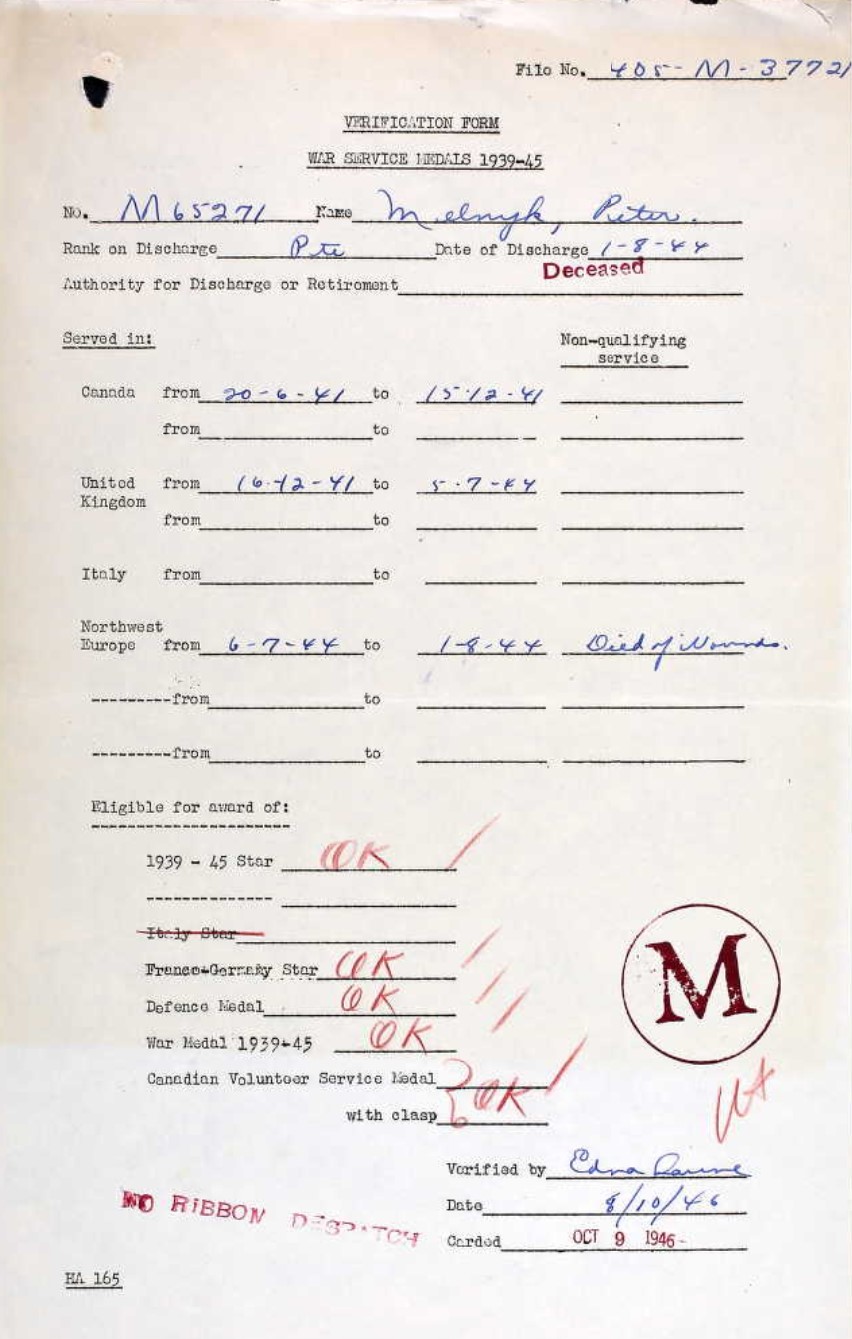 File No. 405-M-37721
VERIFICATION FORM
WAR SERVICE MEDALS 1939-45
No. M65271 Name Melnyk, Peter.
Rank on Discharge Pte Date of Discharge 1-8-44
Deceased
Authority for Discharge or Retirement
Served in: Non-qualifying
service
Canada from 20-6-41 to 15-12-41
from to
United from 16-12-41 to 5-7-44
Kingdom
from to
Italy from to
Northwest
Europe from 6-7-44 to 1-8-44 Died of Wounds.
---------from to
---------from to
Eligible for award of:
1939 - 45 Star OK
Italy Star
France-Germany Star OK
Defence Medal OK
War Medal 1939-45 OK
Canadian Volunteer Service Medal
with clasp OK
M
Verified by Edna
NO RIBBON DESPATCH
Date 8/10/46
Carded OCT 9 1946-
HA 165